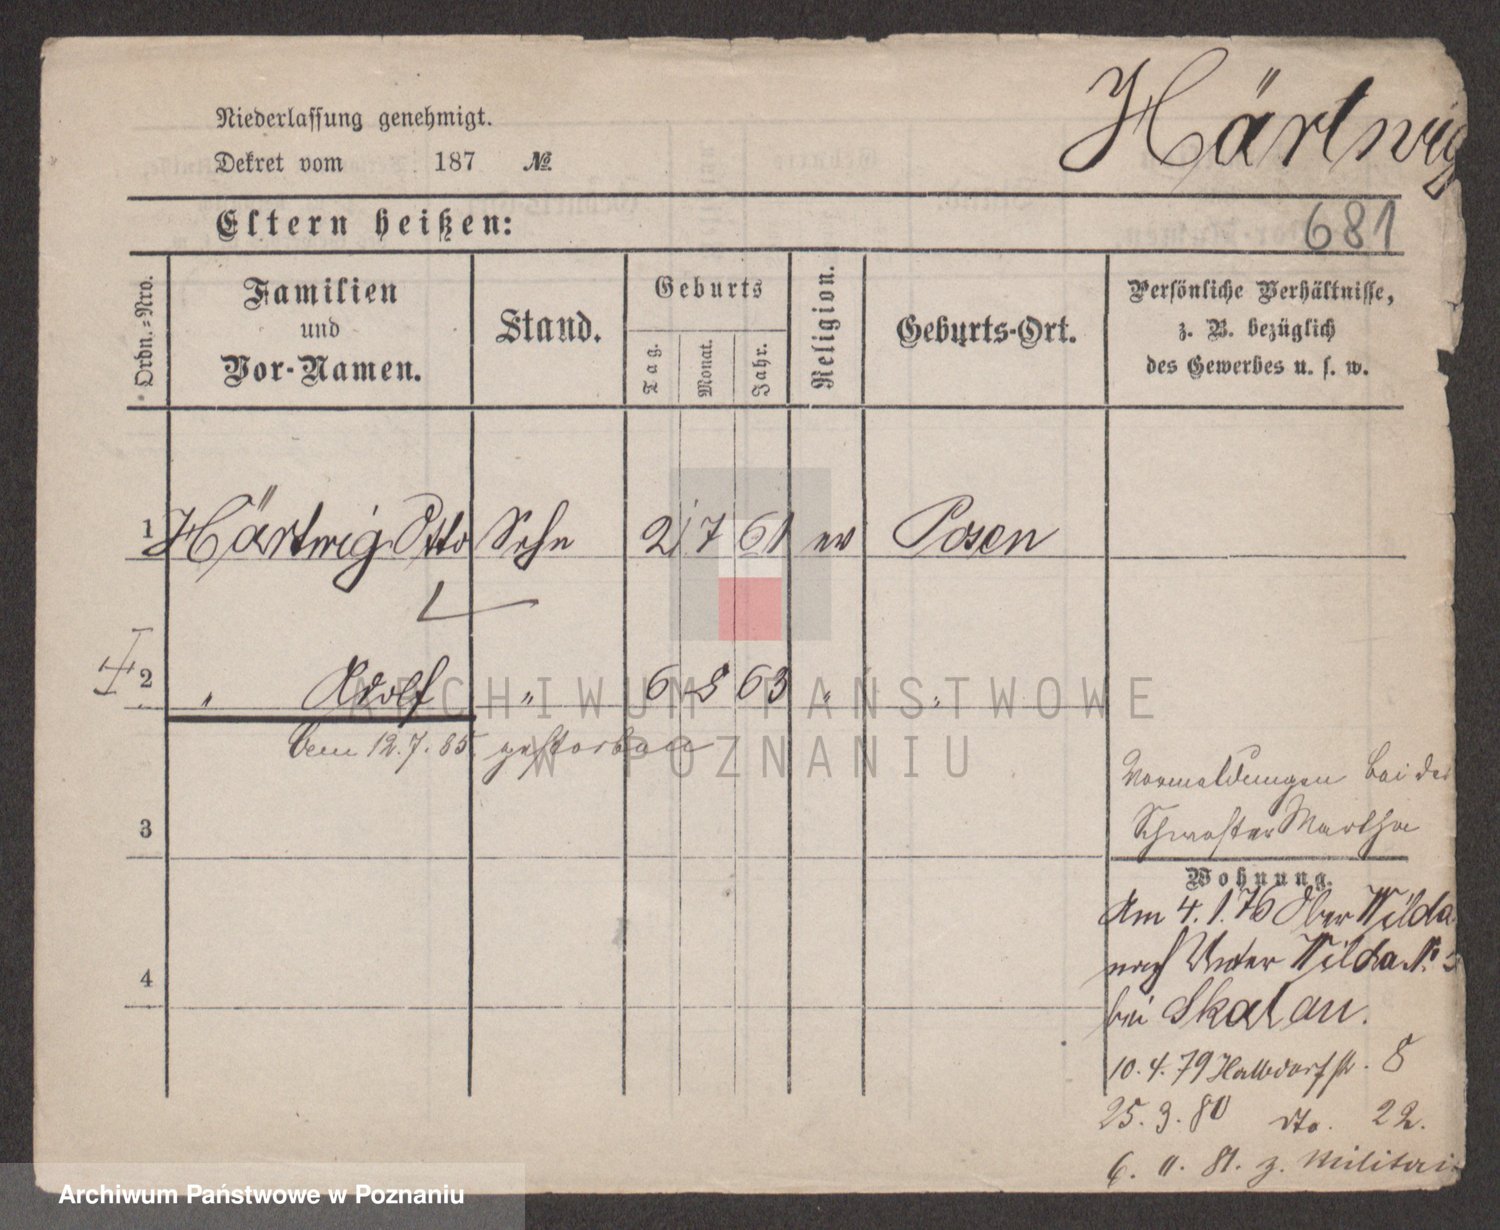 Härtwig
Niederlassung genehmigt.
Dekret vom 187 №
Eltern heißen:
681
Ordn.-Nro.
Familien
und
Vor-Namen.
Stand.
Geburts
Tag.
Monat.
Jahr.
Religion.
Geburts-Ort.
Persönliche Verhältnisse,
z. B. bezüglich
des Gewerbes u. s. w.
1 Härtwig Otto Sohn 2 7 61 ev Posen
2 " Adolf " 6 8 63 " "
12.7.85. gestorben
ARCHIWUM PAŃSTWOWE
W POZNANIU
3
Vormeldungen bei der
Schwester Martha
Wohnung.
Am 4.1.76 Ober Wilda
nach Unter Wilda №
4
bei Skalan.
10.4.79 Halbdorfstr. 8
25.3.80 dto. 22.
6.11.81. z. Militair
Archiwum Państwowe w Poznaniu